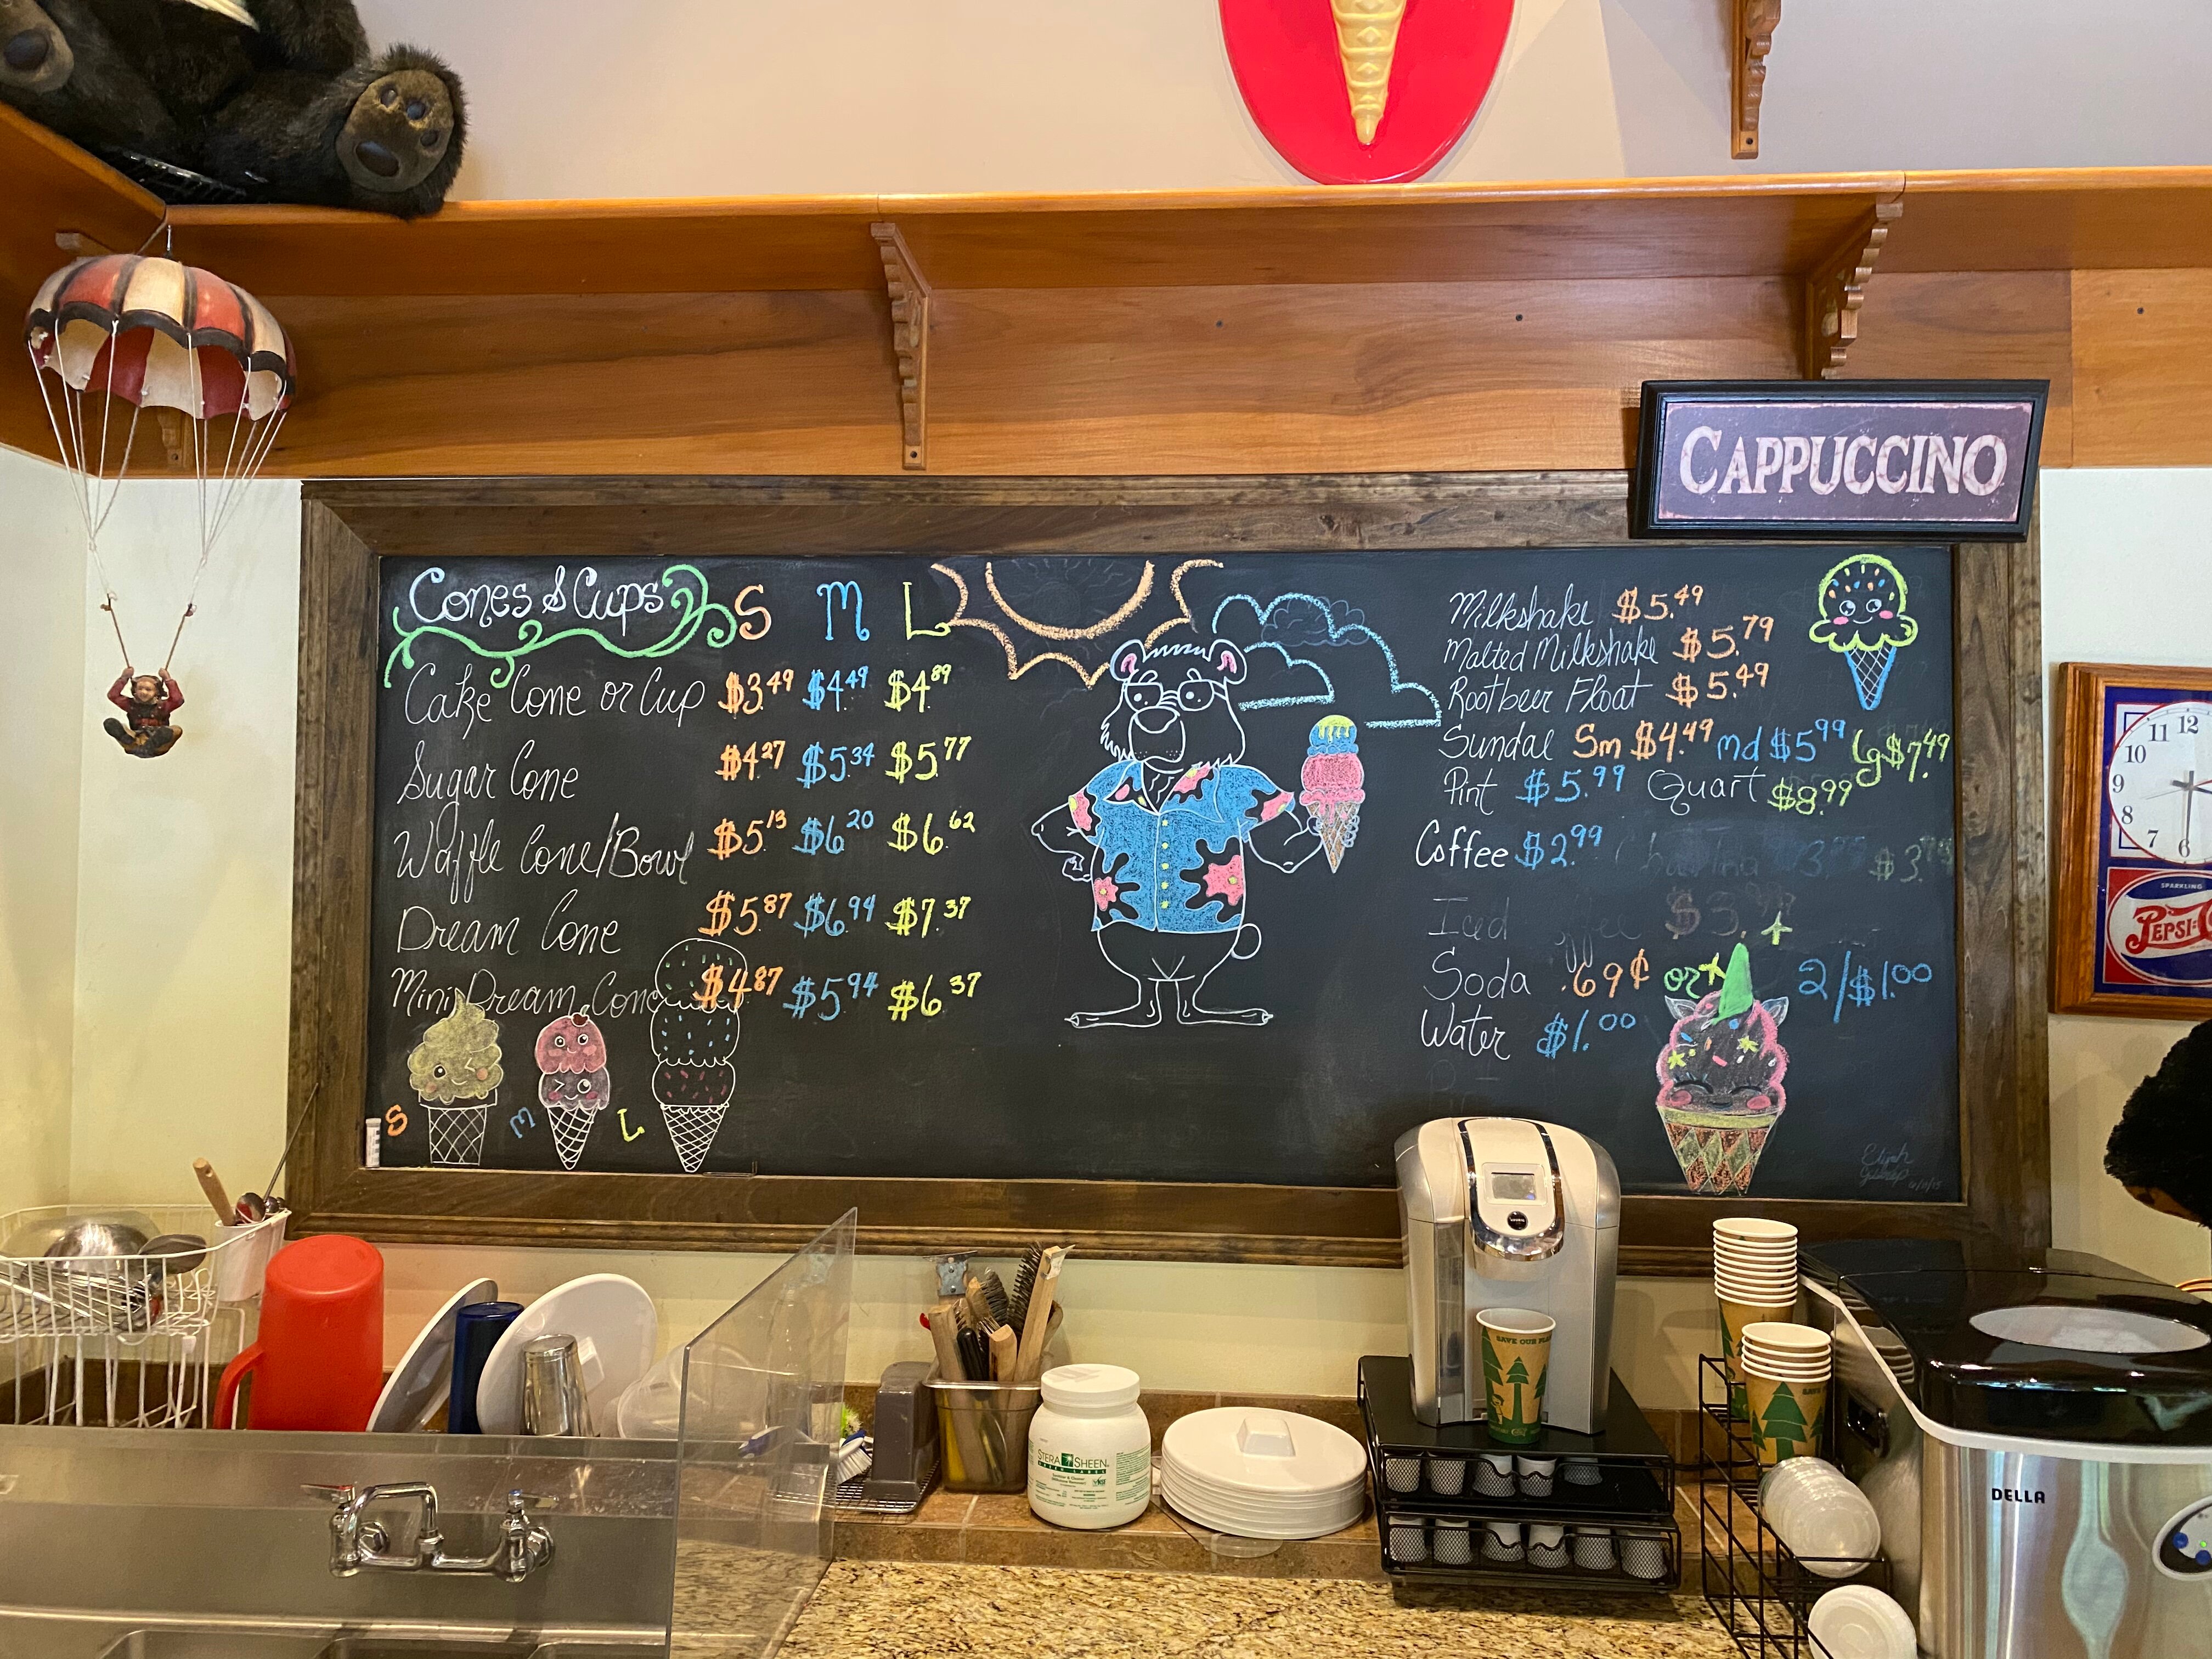 CAPPUCCINO
Cones & Cups S M L
Cake Cone or Cup $3.49 $4.49 $4.89
Sugar Cone $4.27 $5.34 $5.77
Waffle Cone/Bowl $5.13 $6.20 $6.62
Dream Cone $5.87 $6.94 $7.37
Mini Dream Cone $4.87 $5.94 $6.37
S M L
Milkshake $5.49
Malted Milkshake $5.79
Rootbeer Float $5.49
Sundae Sm $4.49 md $5.99 Lg $7.49
Pint $5.99 Quart $8.99
Coffee $2.99
Iced
Soda .69¢ or 2/$1.00
Water $1.00
Elijah
11 12
10
9
8
7 6
SPARKLING
PEPSI
STERA SHEEN
GREEN LABEL
SAVE OUR
DELLA